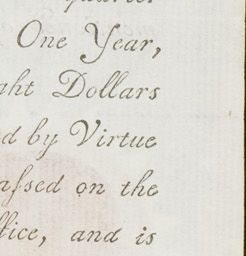 One Year,
ght Dollars
d by Virtue
aſsed on the
ffice, and is